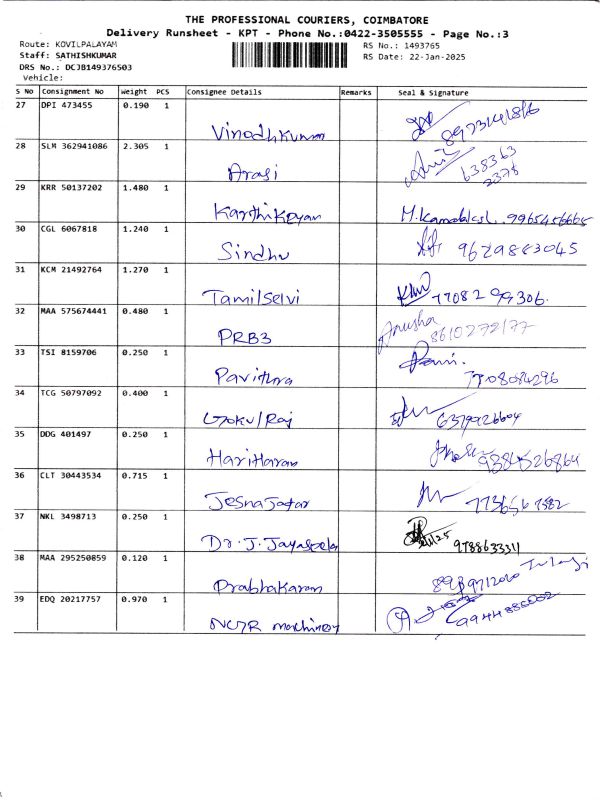 THE PROFESSIONAL COURIERS, COIMBATORE
Delivery Runsheet - KPT - Phone No.:0422-3505555 - Page No.:3
Route: KOVILPALAYAM RS No.: 1493765
Staff: SATHISHKUMAR RS Date: 22-Jan-2025
DRS No.: DCJB149376503
Vehicle:
S No Consignment No Weight PCS Consignee Details Remarks Seal & Signature
27 DPI 473455 0.190 1
Vinodhkumar
28 SLM 362941086 2.305 1
Arasi 638363
2378
29 KRR 50137202 1.480 1
Karthikeyan M.Kamatakal. 9965456665
30 CGL 6067818 1.240 1
Sindhu 9629883045
31 KCM 21492764 1.270 1
Tamilselvi 77082 99306.
32 MAA 575674441 0.480 1 Anusha
PRB3 8610272177
33 TSI 8159706 0.250 1
Pavithra 7708084296
34 TCG 50797092 0.400 1
Gokul Raj 6379926604
35 DDG 401497 0.250 1
Hariharan 9384526864
36 CLT 30443534 0.715 1
Jesna Jafar
37 NKL 3498713 0.250 1
Dr. J. Jayaseela 9788633311
38 MAA 295250859 0.120 1
Prabhakaran
39 EDQ 20217757 0.970 1
NCR machinery